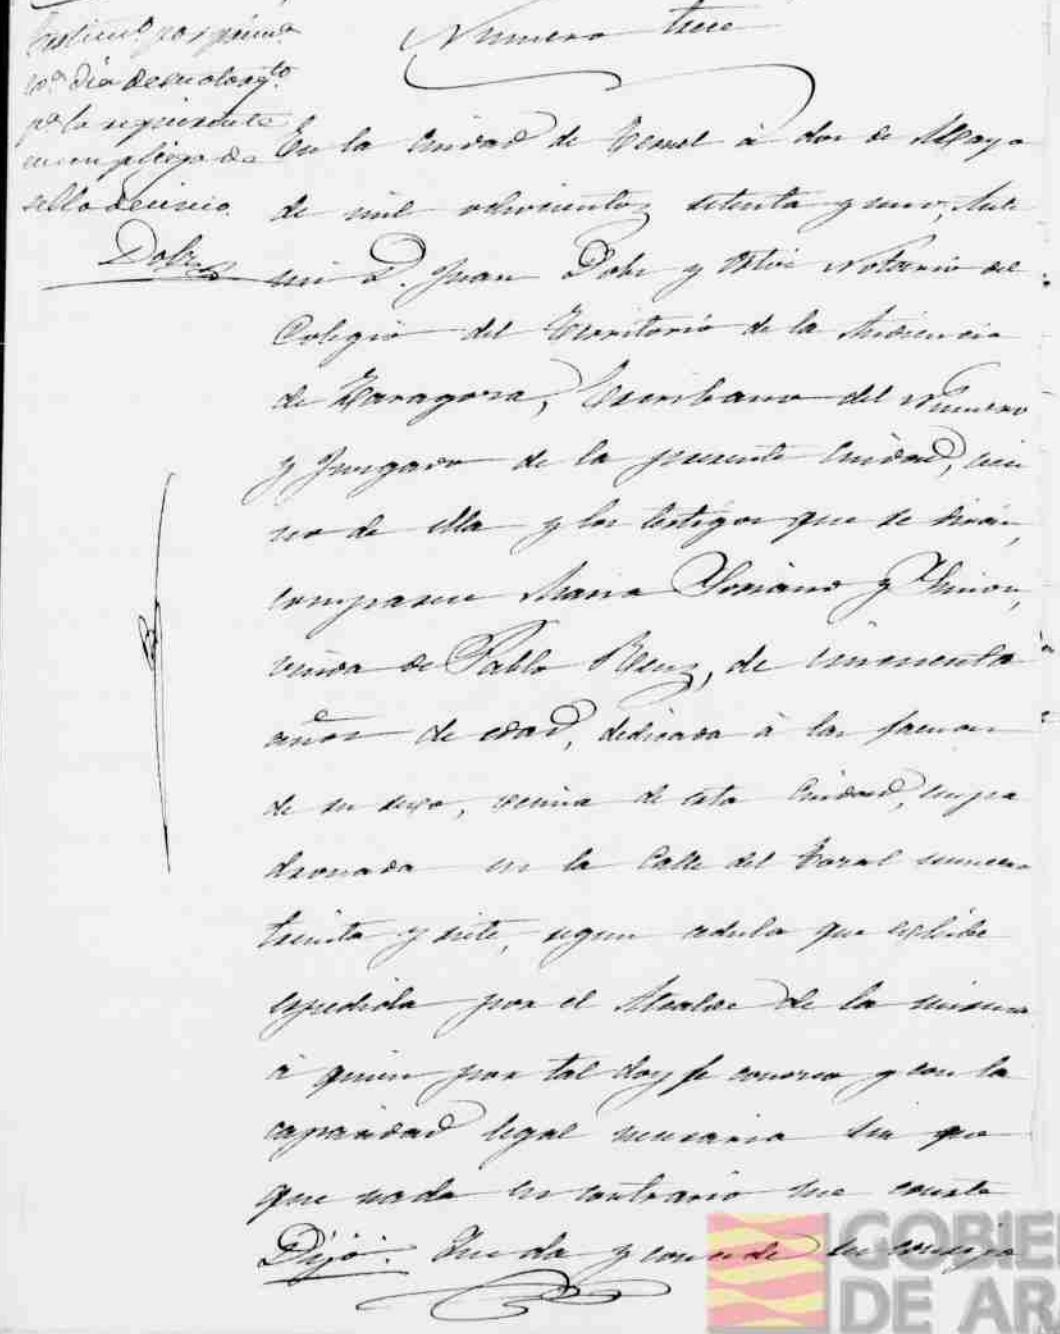 Numero trece
primera
dia de su otorgto
pa la requirente
en un pliego de
sello decimo.
Dolz
En la Ciudad de Teruel á dos de Mayo
de mil ochocientos setenta y uno, Ante
mi D. Juan Dolz y Notario del
Colegio del Territorio de la Audiencia
de Zaragoza, Escribano del Número
y Juzgado de la presente Ciudad, veci
no de ella y los testigos que se dirán,
comparece Maria Soriano y Simon,
viuda de Pablo, de cincuenta
años de edad, dedicada á las faenas
de su sexo, vecina de esta Ciudad, empa
dronada en la Calle del Tozal numero
treinta y siete, segun cedula que exhibe
espedida por el Alcalde de la misma
á quien por tal doy fe conozco y con la
capacidad legal necesaria sin que
que nada en contrario me conste
Dijo: Que da y concede su consejo
GOBIE
DE AR